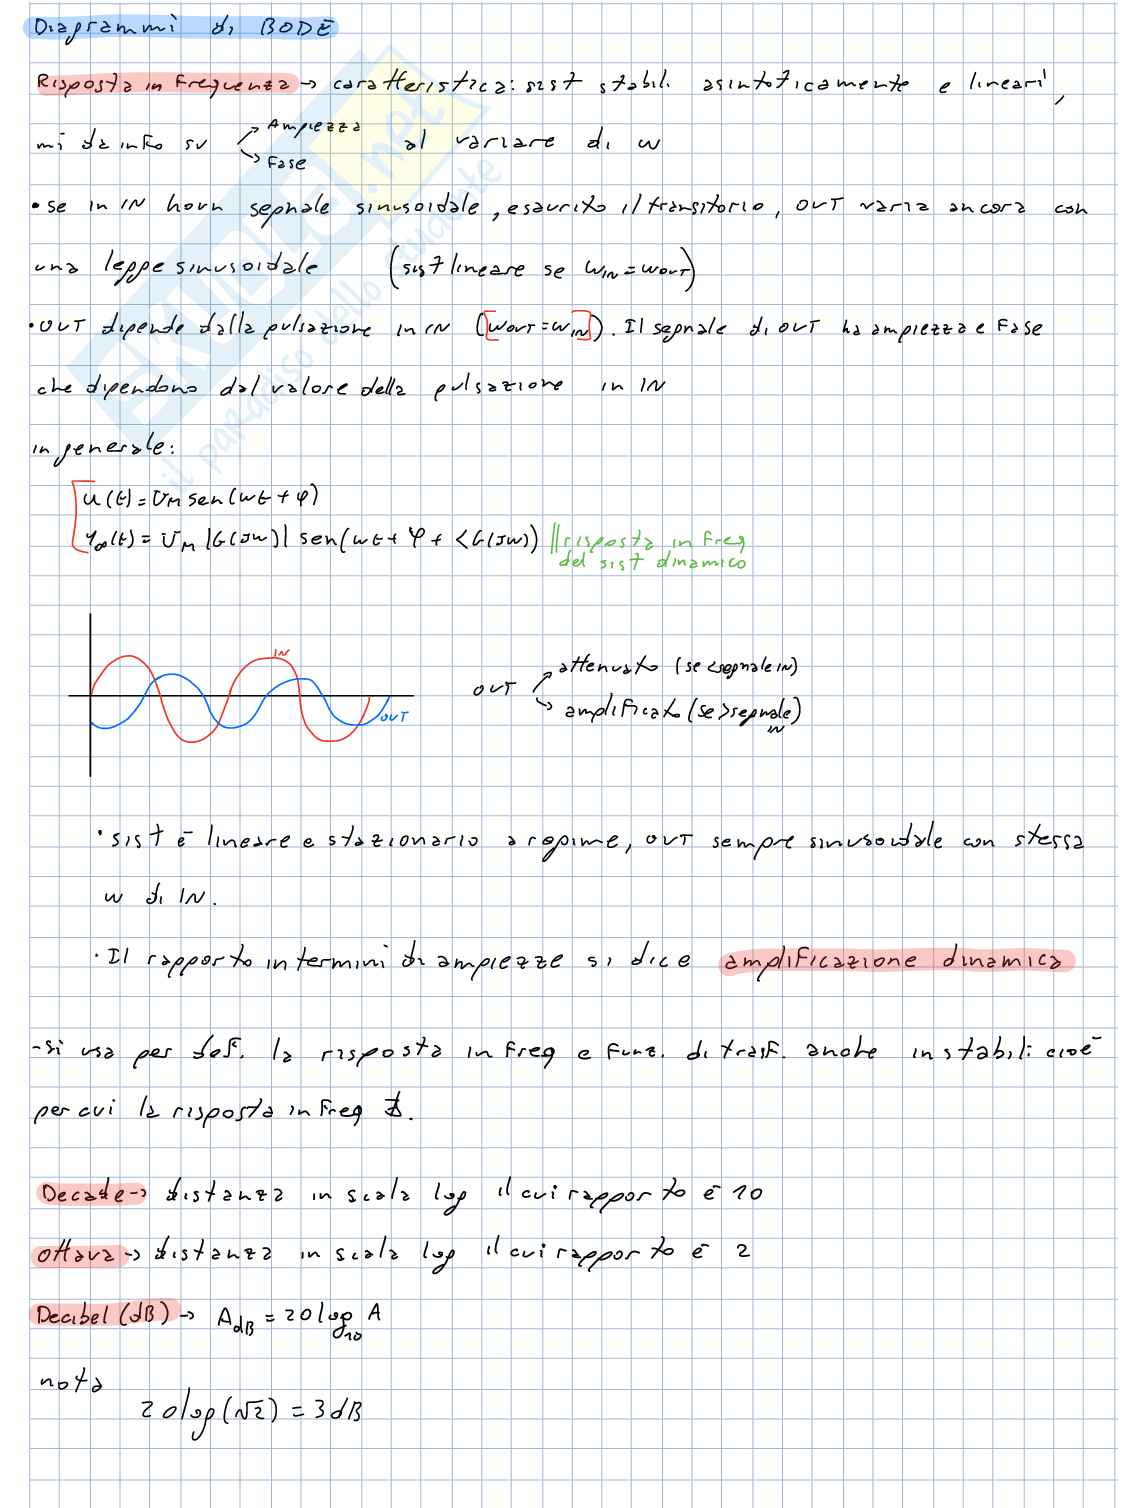 Diagrammi di BODE
Risposta in Frequenza → caratteristica: sist stabili asintoticamente e lineari,
mi da info su → Ampiezza → Fase al variare di w
• se in IN ho un segnale sinusoidale, esaurito il transitorio, OUT varia ancora con
una legge sinusoidale (sist lineare se WIN = WOUT)
• OUT dipende dalla pulsazione in IN ([WOUT = WIN]). Il segnale di OUT ha ampiezza e Fase
che dipendono dal valore della pulsazione in IN
in generale:
u(t) = UM sen(wt + φ)
y∞(t) = UM |G(jw)| sen(wt + φ + <G(jw)) || risposta in Freq
del sist dinamico
IN
OUT
OUT → attenuato (se < segnale IN)
→ amplificato (se > segnale IN)
• sist è lineare e stazionario a regime, OUT sempre sinusoidale con stessa
w di IN.
• Il rapporto in termini di ampiezze si dice amplificazione dinamica
- si usa per def. la risposta in Freq e Funz. di trasf. anche instabili cioè
per cui la risposta in Freq ∄.
Decade → distanza in scala log il cui rapporto è 10
Ottava → distanza in scala log il cui rapporto è 2
Decibel (dB) → AdB = 20 log10 A
nota
20 log(√2) = 3 dB
SKUOLA.net
il paradiso dello studente